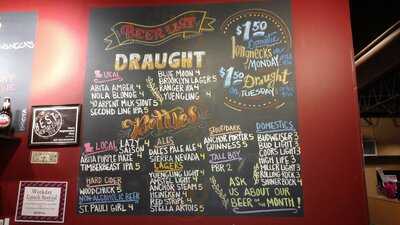 BEER LIST
DRAUGHT
LOCAL
ABITA AMBER 4
NOLA BLONDE 4
40 ARPENT MILK STOUT 5
SECOND LINE IPA 5
BLUE MOON 4
BROOKLYN LAGER 5
RANGER IPA 4
YUENGLING 4
$1.50
Domestic
longnecks
MONDAY
$1.50
Draught
TUESDAY
Bottles
LOCAL
LAZY
SAISON
ABITA PURPLE HAZE 4
TIMBERBEAST IPA 5
HARD CIDER
WOODCHUCK 5
NON-ALCOHOLIC BEER
ST. PAULI GIRL 4
ALES
DALE'S PALE ALE 4
SIERRA NEVADA 4
LAGERS
YUENGLING LIGHT 4
AMSTEL LIGHT 4
ANCHOR STEAM 5
HEINEKEN 4
RED STRIPE 4
STELLA ARTOIS 5
STOUT/DARK
ANCHOR PORTER 5
GUINNESS 5
TALL BOY
PBR 2
DOMESTICS
BUDWEISER 3
BUD LIGHT 3
COORS LIGHT 3
HIGH LIFE 3
MILLER LIGHT 3
ROLLING ROCK 3
SHINER BOCK 3
ASK
US ABOUT OUR
BEER OF THE MONTH!
Weekday
Lunch Special